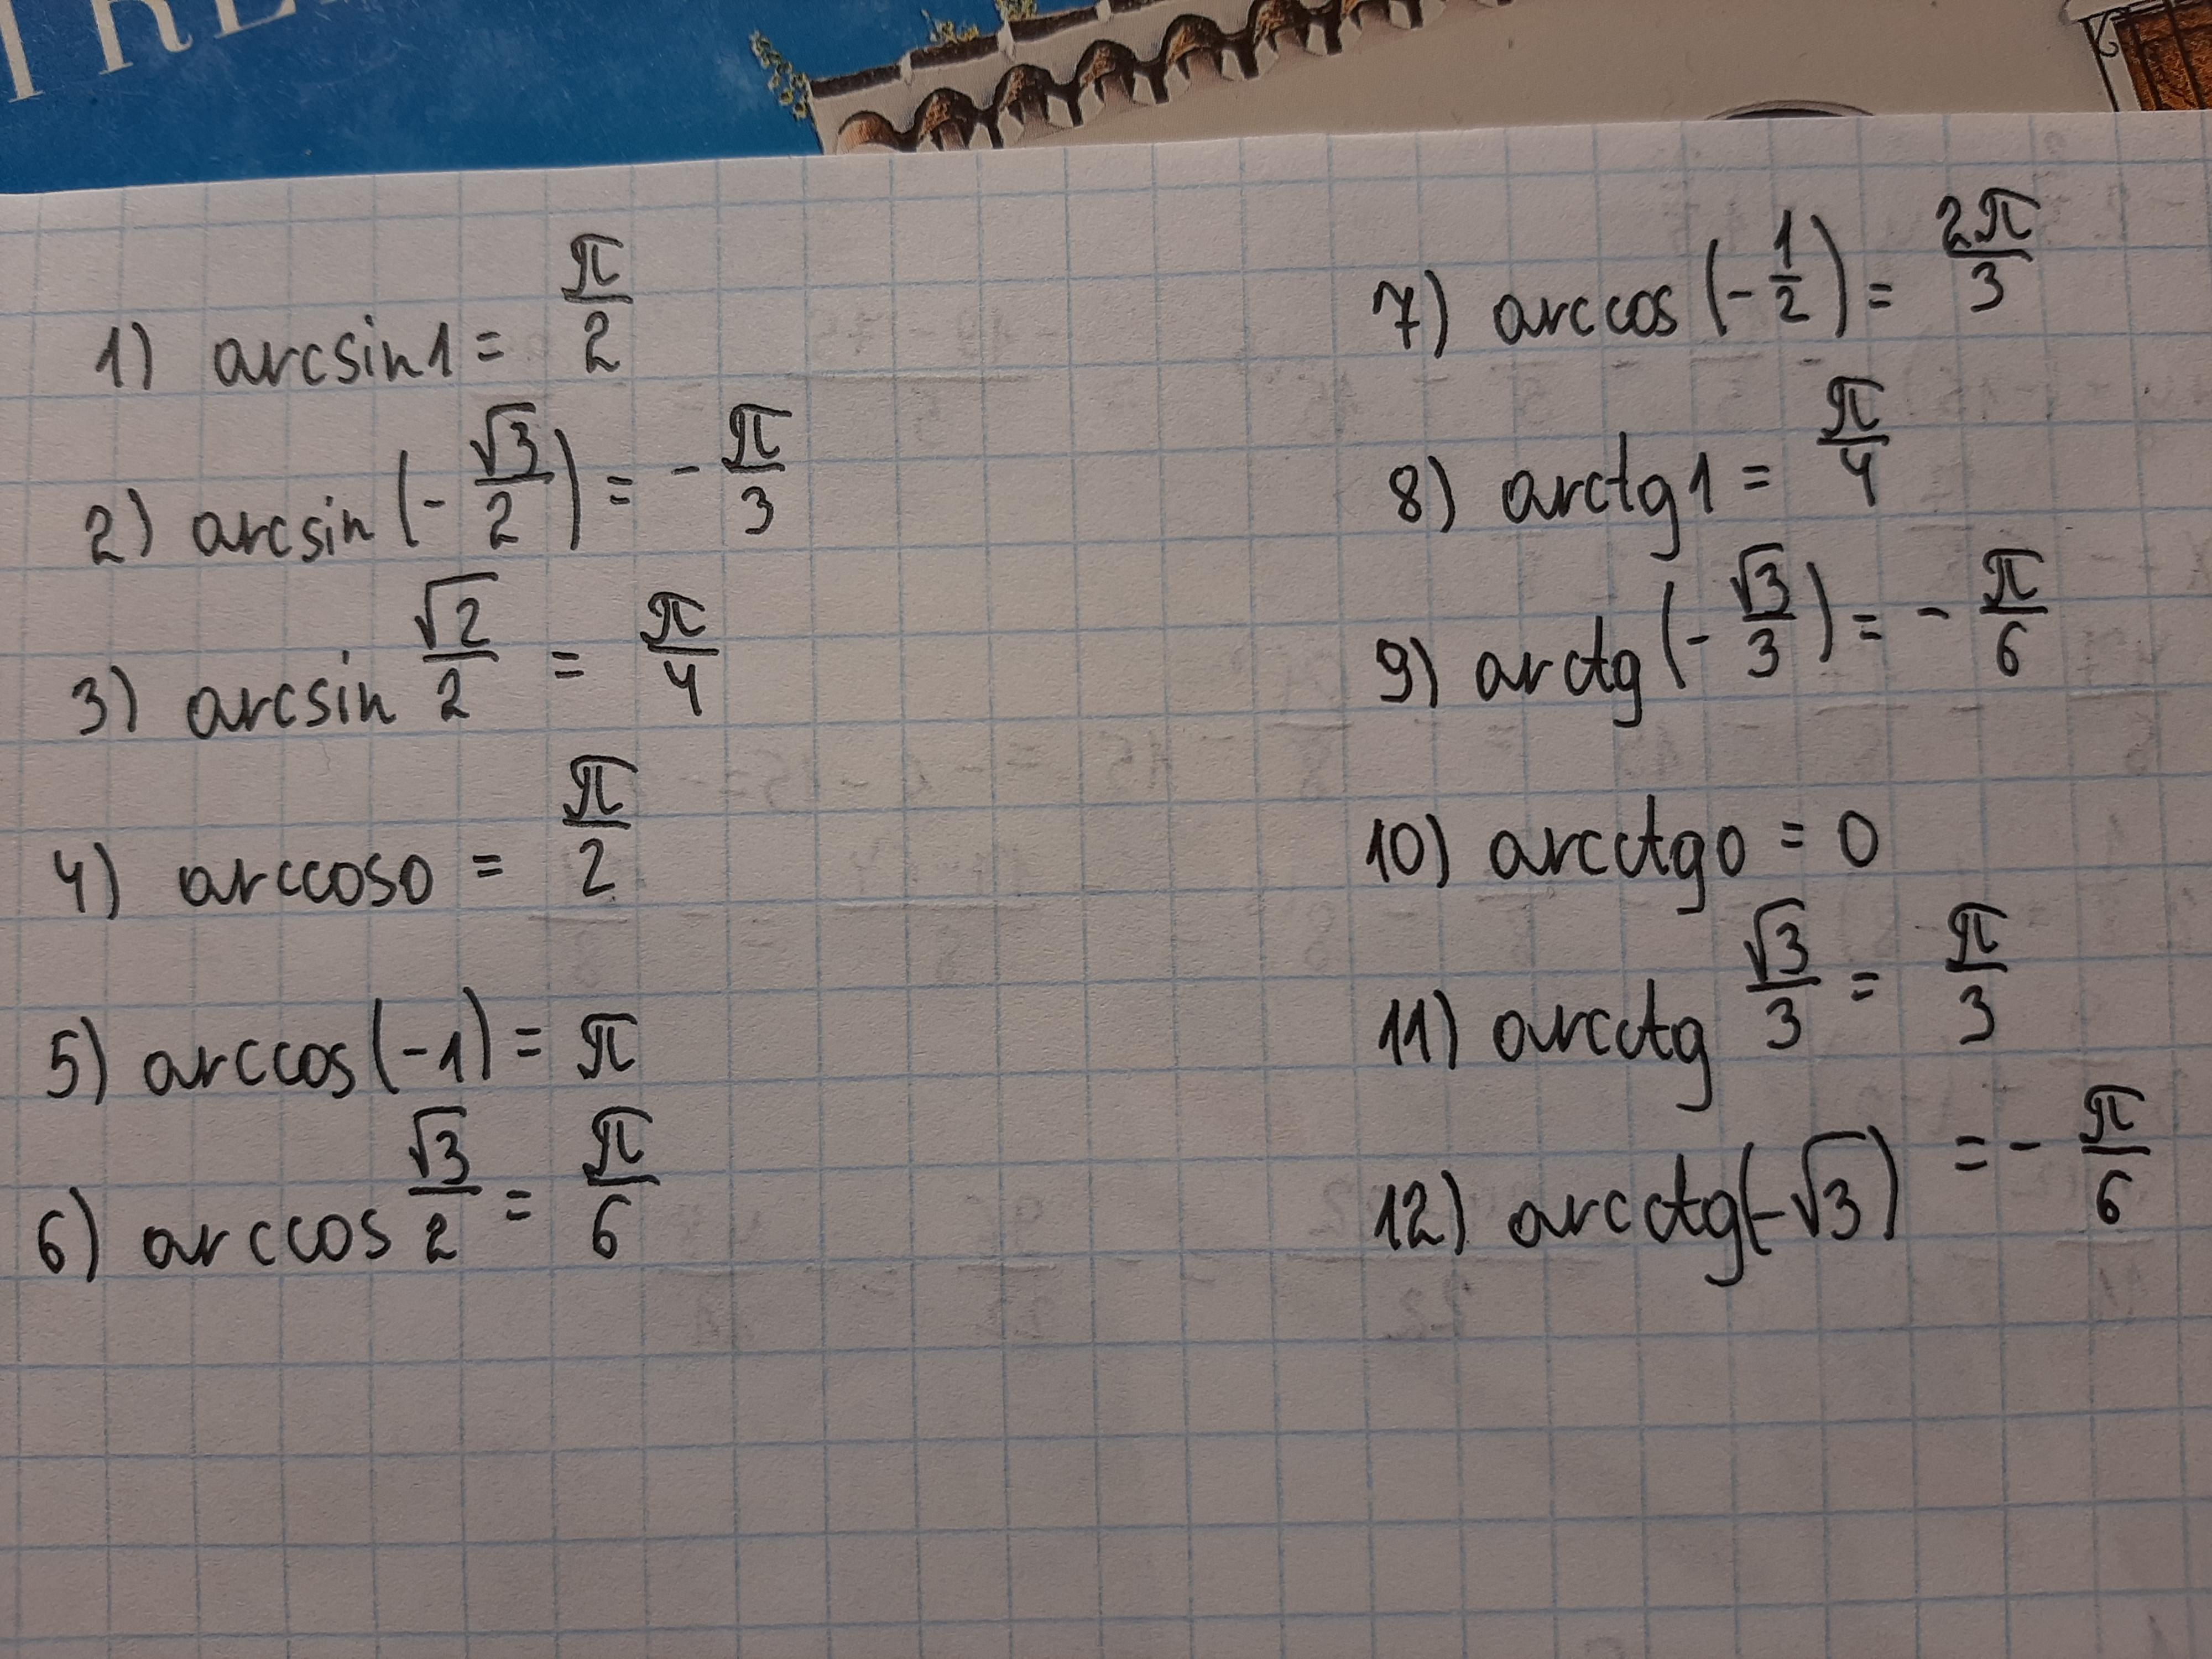 1) arcsin1 = π/2
2) arcsin(-√3/2) = -π/3
3) arcsin √2/2 = π/4
4) arccos0 = π/2
5) arccos(-1) = π
6) arccos √3/2 = π/6
7) arccos(-1/2) = 2π/3
8) arctg1 = π/4
9) arctg(-√3/3) = -π/6
10) arcctg0 = 0
11) arcctg √3/3 = π/3
12) arcctg(-√3) = -π/6